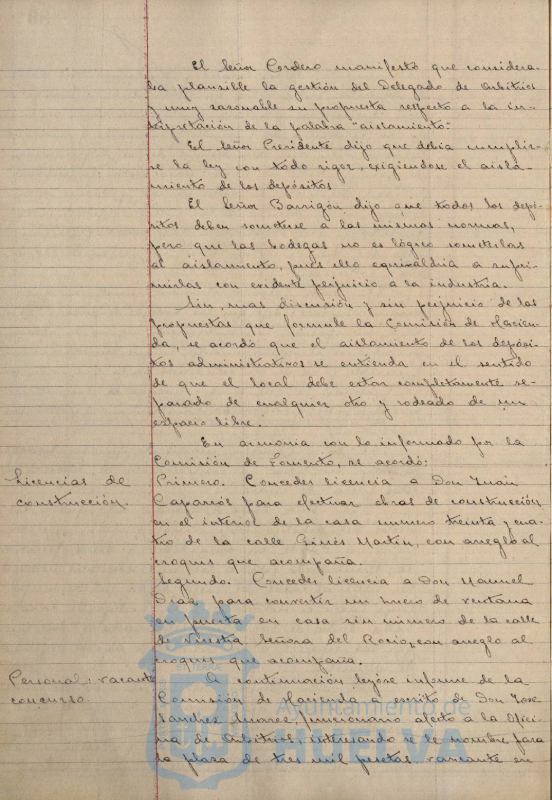 El Señor Cordero manifestó que considera-
ba plausible la gestión del Delegado de Arbitrios
y muy razonable su propuesta respecto a la in-
terpretación de la palabra "aislamiento".
El Señor Presidente dijo que debía cumplir-
se la ley con todo rigor, exigiéndose el aisla-
miento de los depósitos
El Señor Barrigón dijo que todos los depó-
sitos deben someterse a las mismas normas,
pero que las bodegas no es lógico someterlas
al aislamiento, pues ello equivaldría a supri-
mirlas con evidente perjuicio a la industria.
Sin mas discusión y sin perjuicio de las
propuestas que formule la Comisión de Hacien-
da, se acordó que el aislamiento de los depósi-
tos administrativos se entienda en el sentido
de que el local debe estar completamente se-
parado de cualquier otro y rodeado de un
espacio libre.
En armonia con lo informado por la
Comisión de Fomento, se acordó:
Licencias de
construcción.
Primero. Conceder licencia a Don Juan
Caparrós para efectuar obras de construcción
en el interior de la casa número treinta y cua-
tro de la calle Ginés Martín, con arreglo al
croquis que acompaña.
Segundo. Conceder licencia a Don Manuel
Diaz para convertir un hueco de ventana
en puerta en casa sin número de la calle
de Nuestra Señora del Rocío, con arreglo al
croquis que acompaña.
Personal: vacante
concurso.
A continuación leyóse informe de la
Comisión de Hacienda a escrito de Don José
Sanchez Suarez, funcionario afecto a la Ofici-
na de Arbitrios, interesando se le nombre para
la plaza de tres mil pesetas vacante en
Ayuntamiento de
HUELVA